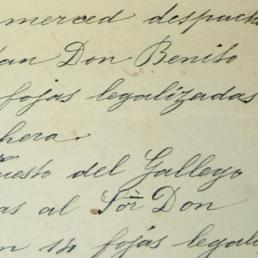 merced despach
an Don Benito
fojas legalizadas
hera.
uesto del Gallego
as al Sōr Don
n 14 fojas legali